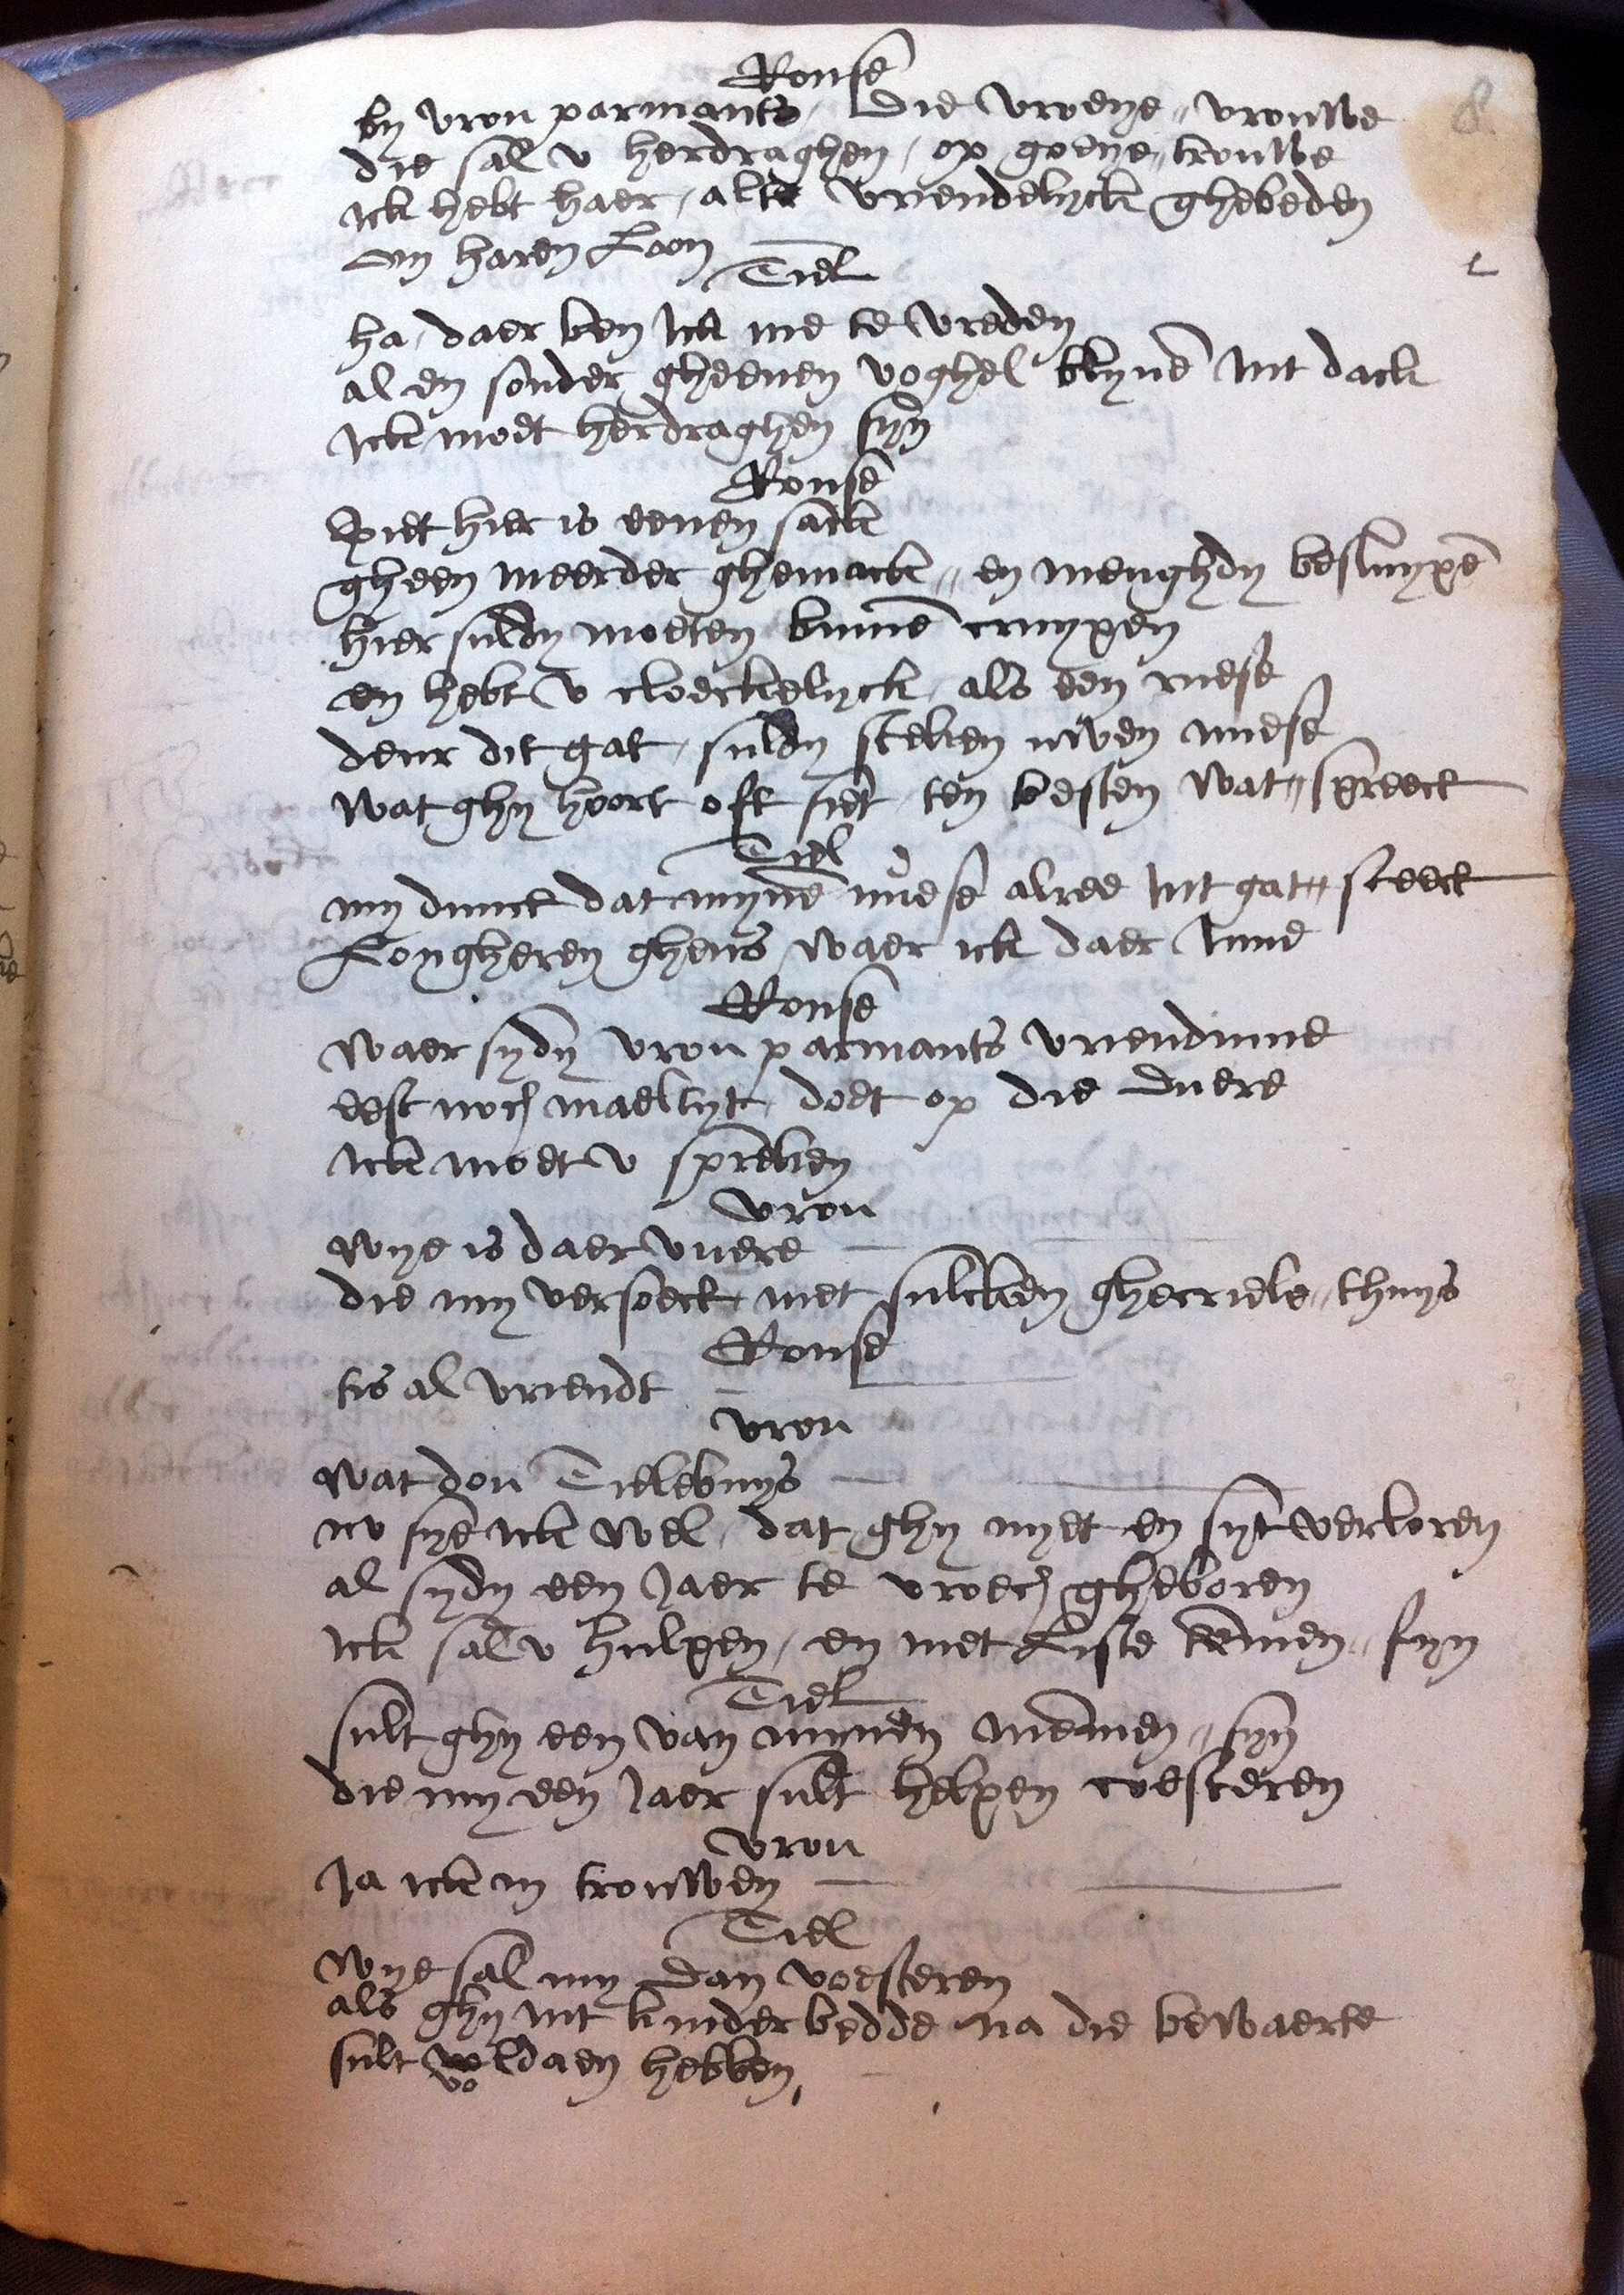 Ronse
by vrou parmants / Die vroeye // vrouwe
die sal v herdraghen / op goeye // trouwe
Ick hebt haer / alte vriendelyck ghebeden
8
Om haren Loon
Tiel
ha / daer ben Ick me te vreden
al en sonder gheenen voghel clyne Int dack
Ick moet herdraghen syn
Ronse
Siet hier is eenen sack
gheen meerder ghemack // en meughdy besluype
hier suldy moeten binne cruypen
en hebt v cloeckelyck / als een riese
deur dit gat / suldy steken uwen nuese
wat ghy hoort oft siet / ten besten wat // spreect
Tiel
my dunct dat myne nuese alree Int gat // steect
Longheren ghens waer ick daer Inne
Ronse
waer sydy vrou parmants vriendinne
eest noch maeltyt / doet op die duere
Ick moet v spreken
vrou
wye is daer vuere
die my versoect / met sulcken ghecriele // thuys
Ronse
tis al vriendt
vrou
wat dou Tielebuys
nv sye ick wel / dat ghy nyet en syt verloren
al sydy een Jaer te vroech gheboren
Ick sal v hulpen / en met Liste temmen // fyn
Tiel
sult ghy een van mynen memmen // syn
die my een Jaer sult helpen coesteren
vrou
Ja ick in trouwen
Tiel
wye sal my dan voesteren
als ghy wt kinderbedde na die bewaerte
sult voldaen hebben,